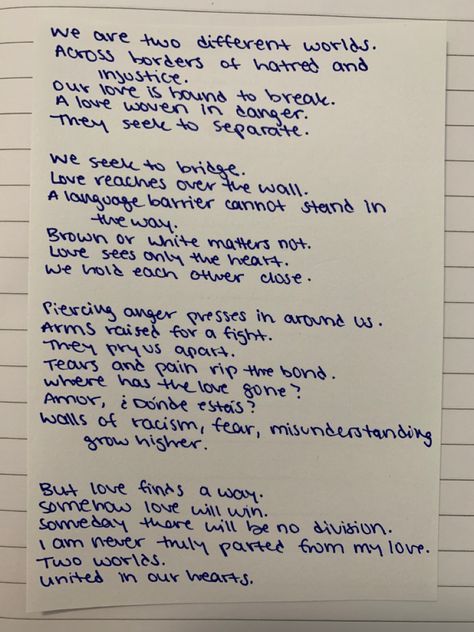 We are two different worlds.
Across borders of hatred and
injustice.
Our love is bound to break.
A love woven in danger.
They seek to separate.
We seek to bridge.
Love reaches over the wall.
A language barrier cannot stand in
the way.
Brown or white matters not.
Love sees only the heart.
We hold each other close.
Piercing anger presses in around us.
Arms raised for a fight.
They pry us apart.
Tears and pain rip the bond.
Where has the love gone?
Amor, ¿Dónde estás?
Walls of racism, fear, misunderstanding
grow higher.
But love finds a way.
Somehow love will win.
Someday there will be no division.
I am never truly parted from my love.
Two worlds.
United in our hearts.